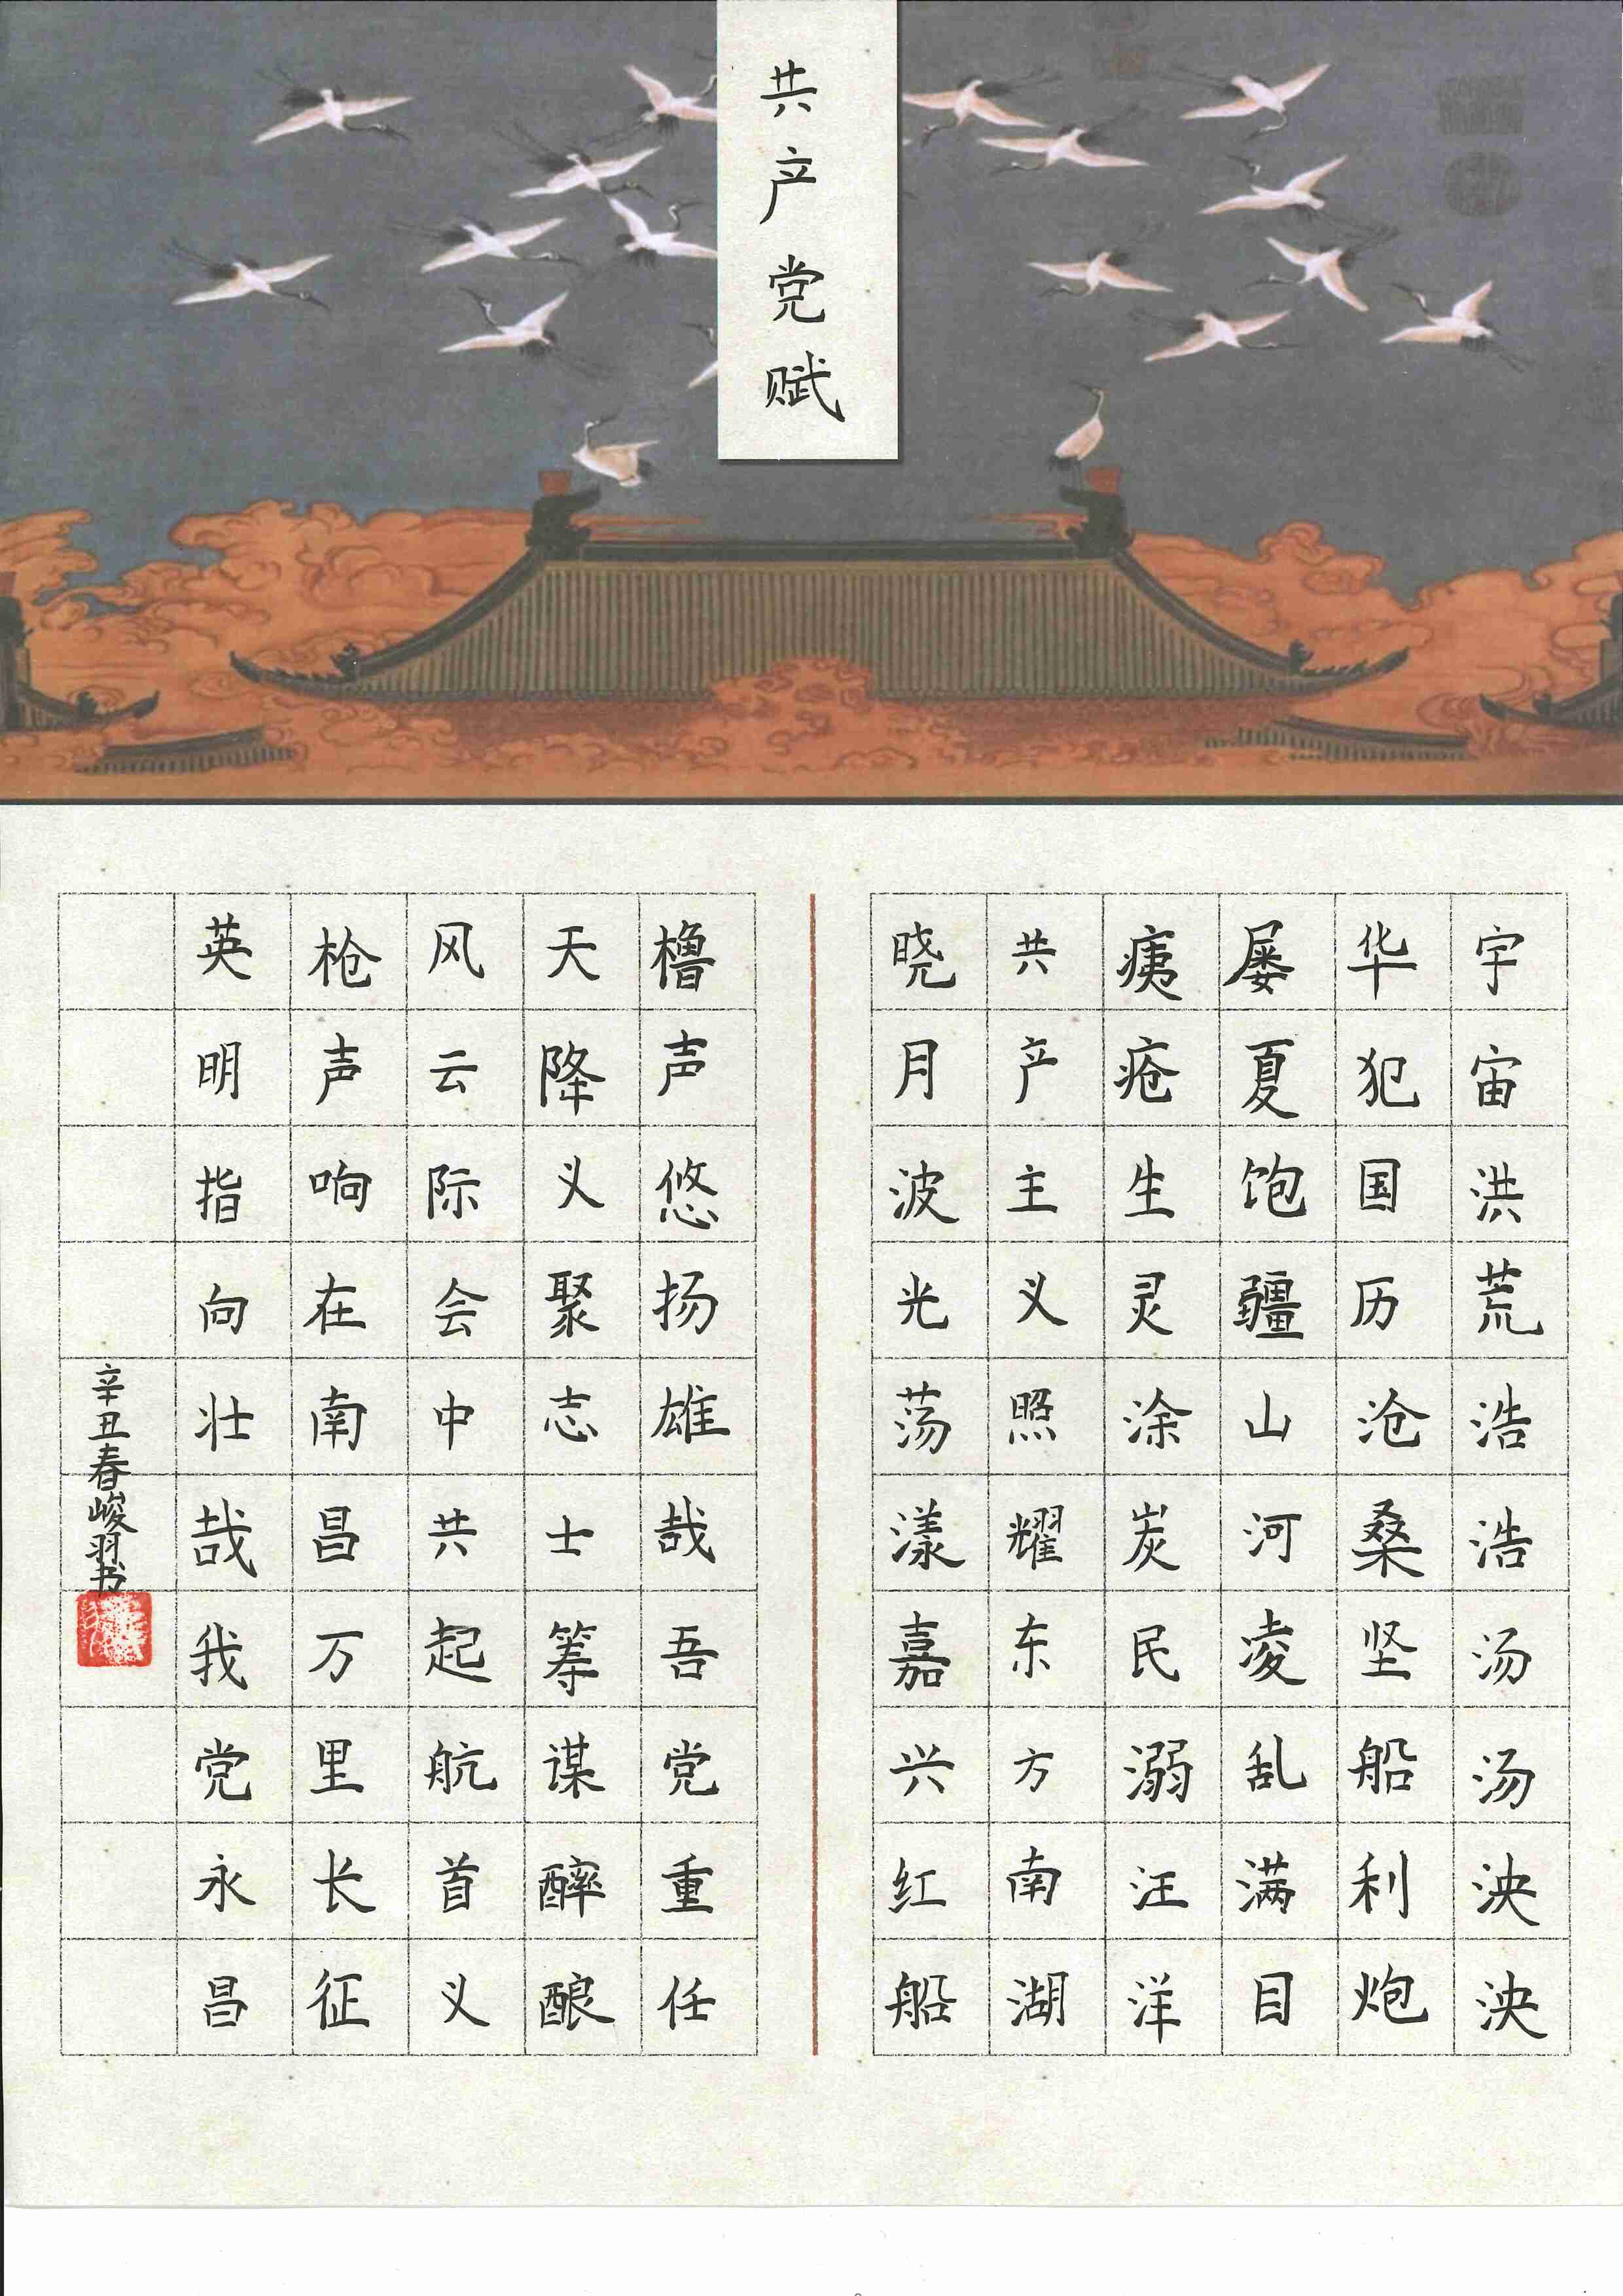 共产党赋
宇宙洪荒浩浩汤汤泱泱
华犯国历沧桑坚船利炮
屡夏饱疆山河凌乱满目
痍疮生灵涂炭民溺汪洋
共产主义照耀东方南湖
晓月波光荡漾嘉兴红船
橹声悠扬雄哉吾党重任
天降义聚志士筹谋酵酿
风云际会中共起航首义
枪声响在南昌万里长征
英明指向壮哉我党永昌
辛丑春峻羽书